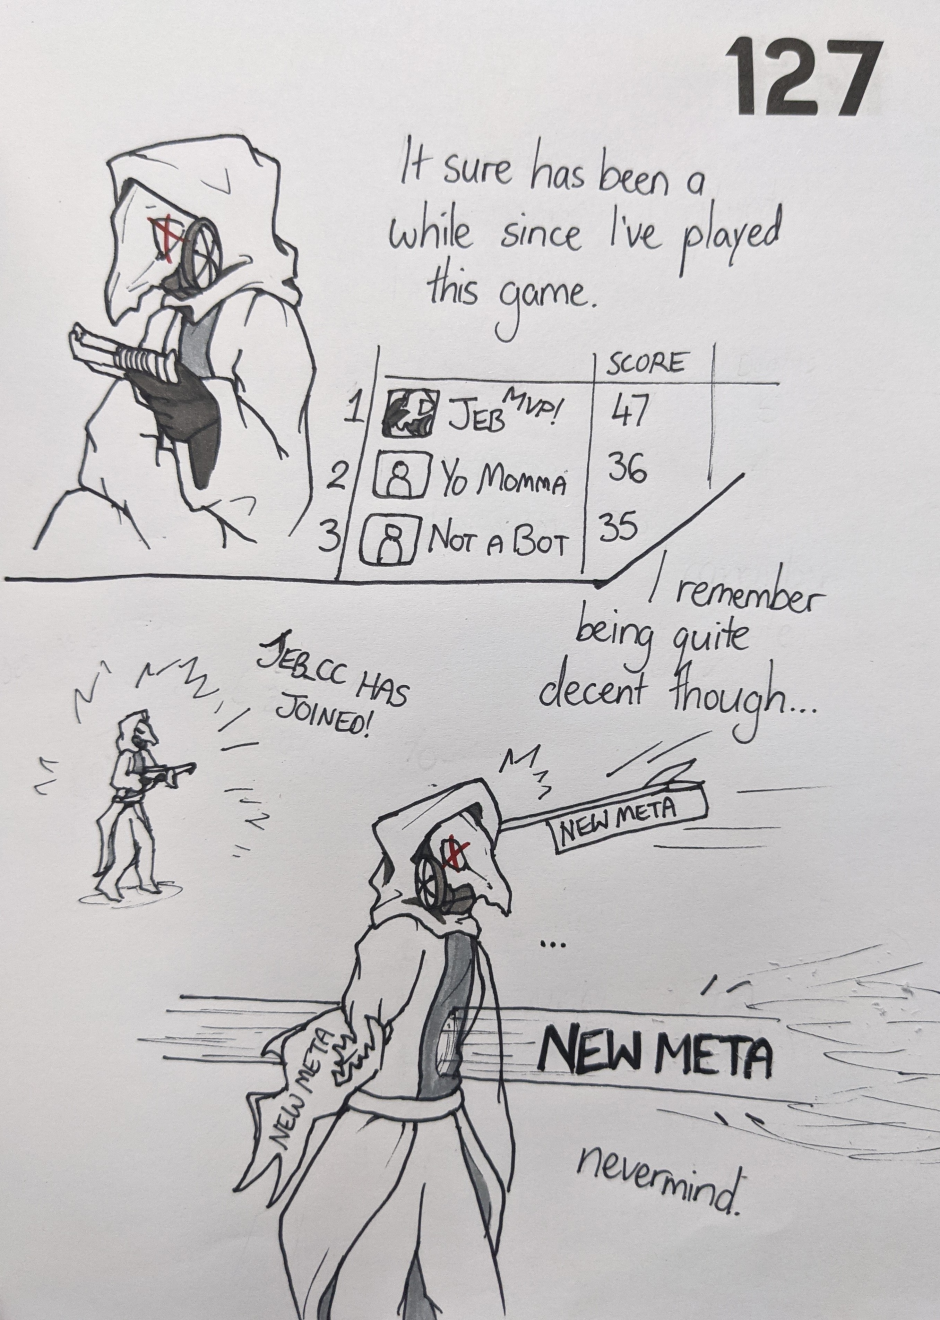 127
It sure has been a
while since I've played
this game.
SCORE
1 JEB MVP! 47
2 YO MOMMA 36
3 NOT A BOT 35
I remember
being quite
decent though...
JEB_CC HAS
JOINED!
NEW META
...
NEW META
NEW META
nevermind.